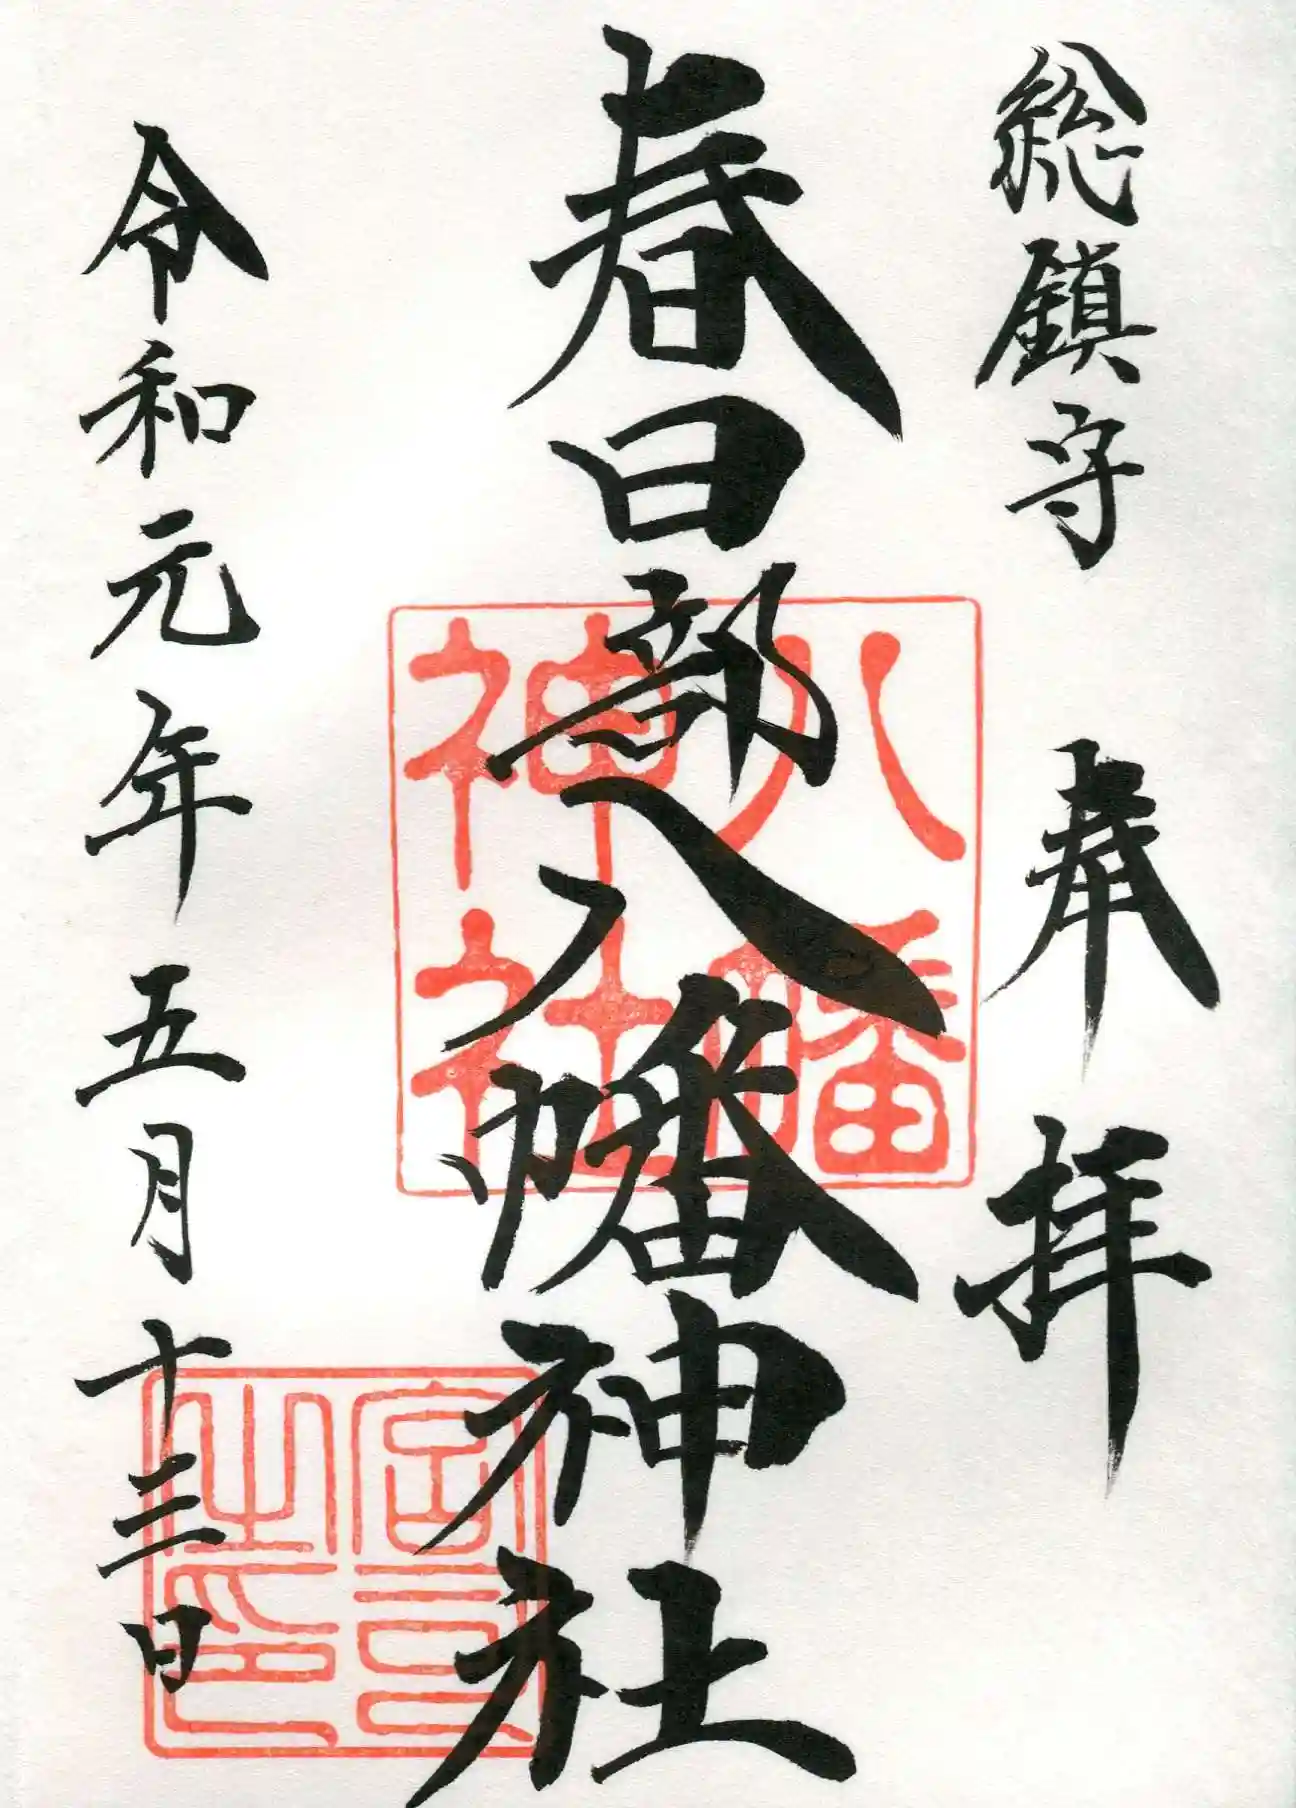 総鎮守 奉拝
春日部八幡神社
八幡神社
令和元年五月十三日
宮司之印